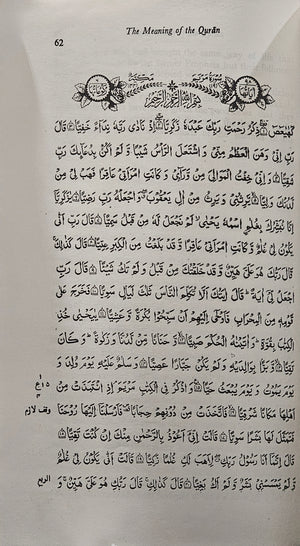 The Meaning of the Qurān
62
سُوْرَةُ مَرْيَمَ مَكِّيَّةٌ
بِسْمِ اللّٰهِ الرَّحْمٰنِ الرَّحِيْمِ
كٓهٰيٰعٓصٓ ۝ ذِكْرُ رَحْمَتِ رَبِّكَ عَبْدَهٗ زَكَرِيَّا ۝ اِذْ نَادٰى رَبَّهٗ نِدَآءً خَفِيًّا ۝ قَالَ
رَبِّ اِنِّىْ وَهَنَ الْعَظْمُ مِنِّىْ وَ اشْتَعَلَ الرَّاْسُ شَيْبًا وَّ لَمْ اَكُنْۢ بِدُعَآئِكَ رَبِّ
شَقِيًّا ۝ وَ اِنِّىْ خِفْتُ الْمَوَالِىَ مِنْ وَّرَآءِىْ وَ كَانَتِ امْرَاَتِىْ عَاقِرًا فَهَبْ لِىْ مِنْ
لَّدُنْكَ وَلِيًّا ۝ يَّرِثُنِىْ وَ يَرِثُ مِنْ اٰلِ يَعْقُوْبَ وَ اجْعَلْهُ رَبِّ رَضِيًّا ۝ يٰزَكَرِيَّا
اِنَّا نُبَشِّرُكَ بِغُلٰمِ ۨاسْمُهٗ يَحْيٰى لَمْ نَجْعَلْ لَّهٗ مِنْ قَبْلُ سَمِيًّا ۝ قَالَ رَبِّ اَنّٰى
يَكُوْنُ لِىْ غُلٰمٌ وَّ كَانَتِ امْرَاَتِىْ عَاقِرًا وَّ قَدْ بَلَغْتُ مِنَ الْكِبَرِ عِتِيًّا ۝ قَالَ كَذٰلِكَ
قَالَ رَبُّكَ هُوَ عَلَىَّ هَيِّنٌ وَّ قَدْ خَلَقْتُكَ مِنْ قَبْلُ وَ لَمْ تَكُ شَيْئًا ۝ قَالَ رَبِّ
اجْعَلْ لِّىْ اٰيَةً قَالَ اٰيَتُكَ اَلَّا تُكَلِّمَ النَّاسَ ثَلٰثَ لَيَالٍ سَوِيًّا ۝ فَخَرَجَ عَلٰى
قَوْمِهٖ مِنَ الْمِحْرَابِ فَاَوْحٰى اِلَيْهِمْ اَنْ سَبِّحُوْا بُكْرَةً وَّ عَشِيًّا ۝ يٰيَحْيٰى خُذِ
الْكِتٰبَ بِقُوَّةٍ وَ اٰتَيْنٰهُ الْحُكْمَ صَبِيًّا ۝ وَّ حَنَانًا مِّنْ لَّدُنَّا وَ زَكٰوةً وَ كَانَ
تَقِيًّا ۝ وَّ بَرًّۢا بِوَالِدَيْهِ وَ لَمْ يَكُنْ جَبَّارًا عَصِيًّا ۝ وَ سَلٰمٌ عَلَيْهِ يَوْمَ وُلِدَ وَ
يَوْمَ يَمُوْتُ وَ يَوْمَ يُبْعَثُ حَيًّا ۝ وَ اذْكُرْ فِى الْكِتٰبِ مَرْيَمَ اِذِ انْتَبَذَتْ مِنْ
اَهْلِهَا مَكَانًا شَرْقِيًّا ۝ فَاتَّخَذَتْ مِنْ دُوْنِهِمْ حِجَابًا فَاَرْسَلْنَآ اِلَيْهَا رُوْحَنَا وقف لازم
فَتَمَثَّلَ لَهَا بَشَرًا سَوِيًّا ۝ قَالَتْ اِنِّىْ اَعُوْذُ بِالرَّحْمٰنِ مِنْكَ اِنْ كُنْتَ تَقِيًّا ۝
قَالَ اِنَّمَآ اَنَا رَسُوْلُ رَبِّكِ لِاَهَبَ لَكِ غُلٰمًا زَكِيًّا ۝ قَالَتْ اَنّٰى يَكُوْنُ لِىْ غُلٰمٌ
وَّ لَمْ يَمْسَسْنِىْ بَشَرٌ وَّ لَمْ اَكُ بَغِيًّا ۝ قَالَ كَذٰلِكِ قَالَ رَبُّكِ هُوَ عَلَىَّ هَيِّنٌ وَ الربع